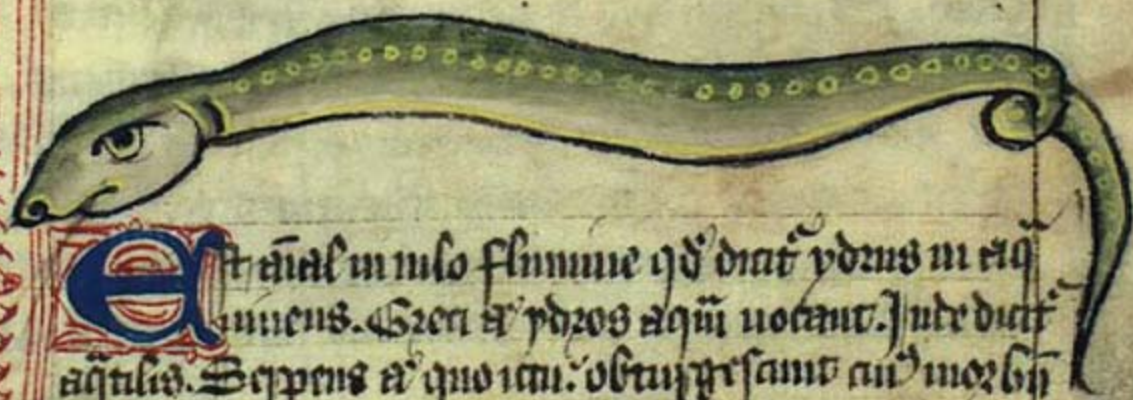 Est aīal in nilo flumine qd̓ dicit᷑ ydrus in aq̄
uiuens. Greci .n. ydros aquā uocant. Inde dicit᷑
aq̄tilis. Serpens a quo ictu: obturgescunt cui᷒ morbū